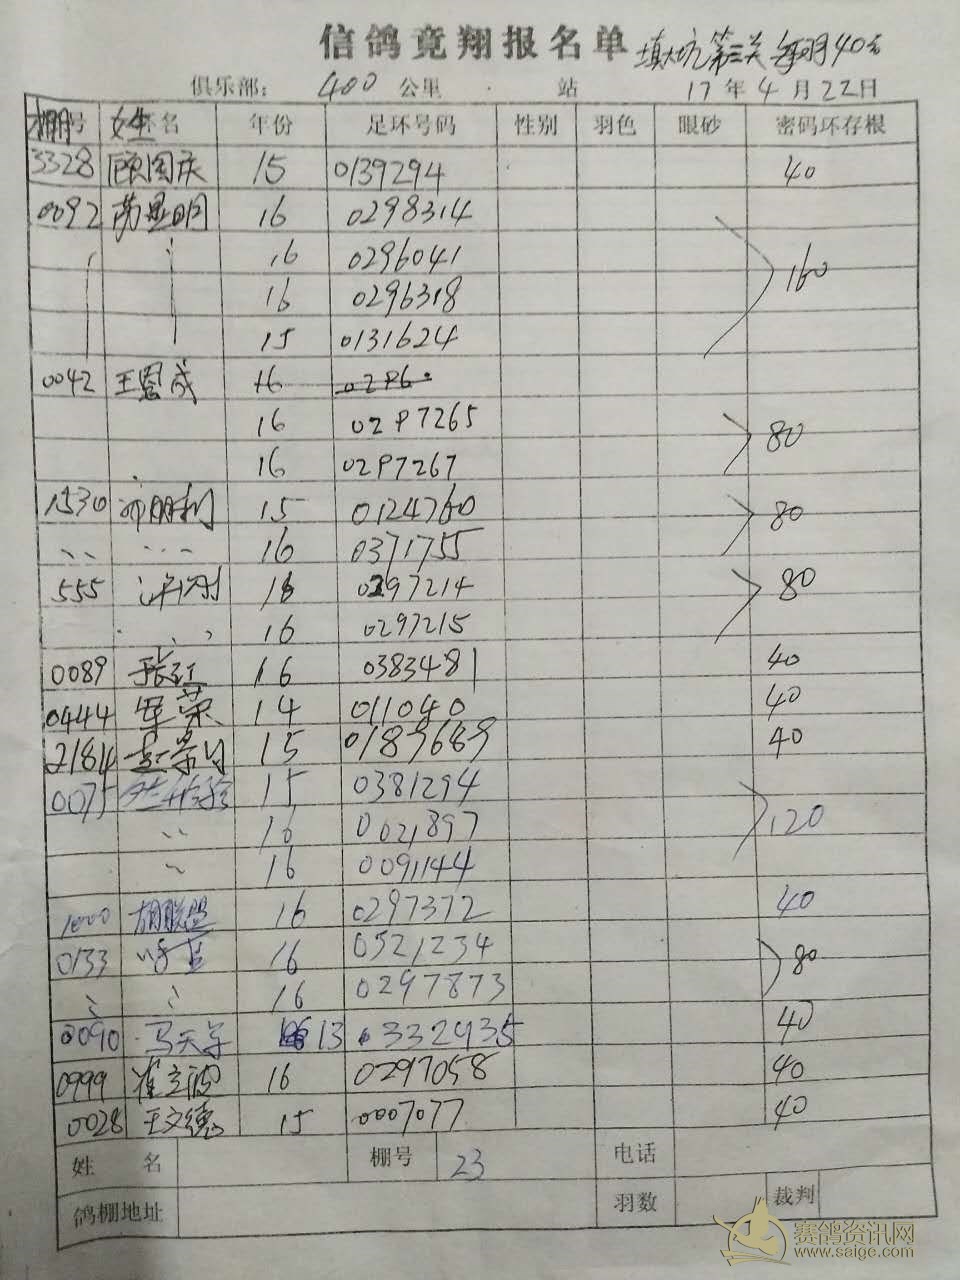 信鸽竞翔报名单 填大坑 第三关 每羽40元
俱乐部: 400 公里 站 17年4月22日
棚号 姓名 年份 足环号码 性别 羽色 眼砂 密码环存根
3328 顾国庆 15 0139294 40
0092 明 16 0298314
16 0296041 160
16 0296318
15 0131624
0042 王恩成 16 0296
16 0297265 80
16 0297267
1530 明利 15 0124760 80
16 0371755
555 16 0297214 80
16 0297215
0089 张红 16 0383481 40
0444 荣 14 011040 40
2184 15 0189689 40
0075 15 0381294
16 0021897 120
16 0091144
1000 胡联盟 16 0297372 40
0133 16 0521234 80
16 0297873
0090 马天 13 0332935 40
0999 崔立波 16 0297058 40
0028 王文德 15 0007077 40
姓名 棚号 23 电话
鸽棚地址 羽数 裁判
赛鸽资讯网
www.saige.com